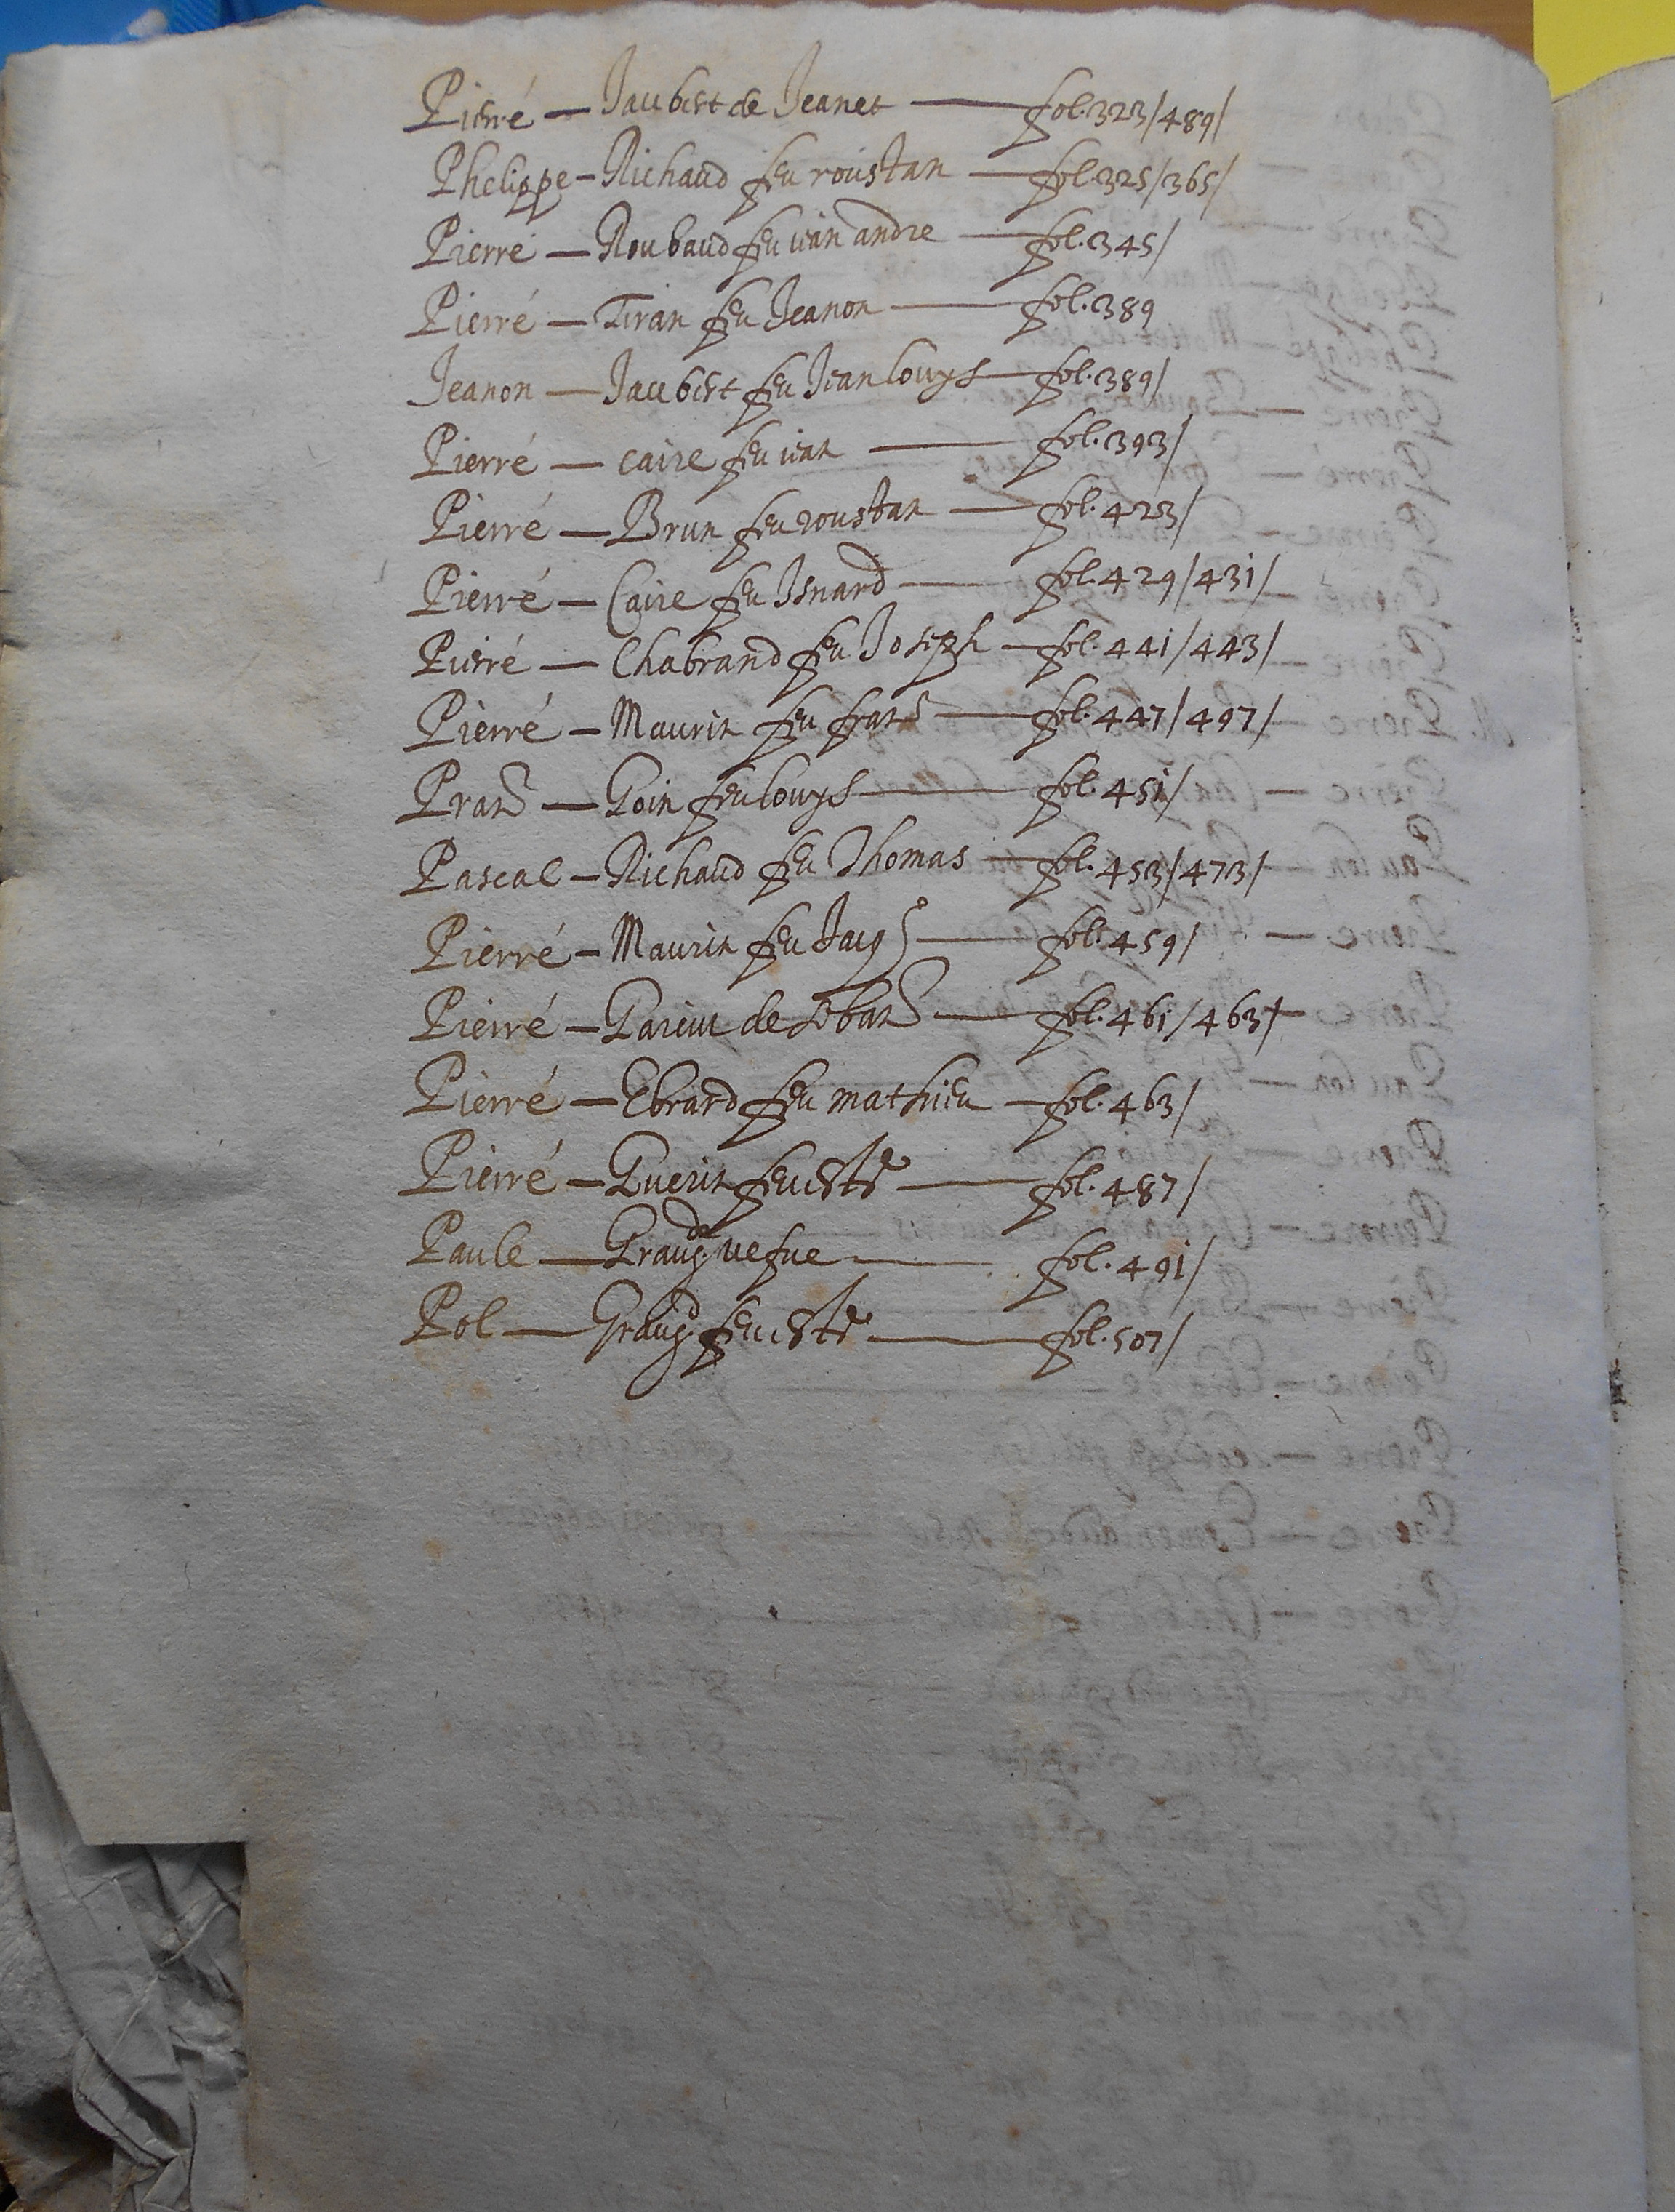 Pierré — Jaubert de Jeanet — fol. 323/489/
Phelippe — Richaud feu roustan — fol. 325/365/
Pierré — Roubaud feu iean andre — fol. 345/
Pierré — Tiran feu Jeanon — fol. 389
Jeanon — Jaubert feu Jean louys — fol. 389/
Pierré — caire feu iean — fol. 393/
Pierré — Brun feu roustan — fol. 423/
Pierré — Caire feu Isnard — fol. 429/431/
Pierré — Chabrand feu Joseph — fol. 441/443/
Pierré — Maurin feu frans — fol. 447/497/
Goin feu louys — fol. 451/
Pascal — Richaud feu Thomas — fol. 453/473/
Pierré — Maurin feu Jaqs — fol. 459/
Pierré — de — fol. 461/463/
Pierré — Ebrard feu mathieu — fol. 463/
Pierré — Guerin feu — fol. 487/
Paule — vefue — fol. 491/
Pol — feu — fol. 507/